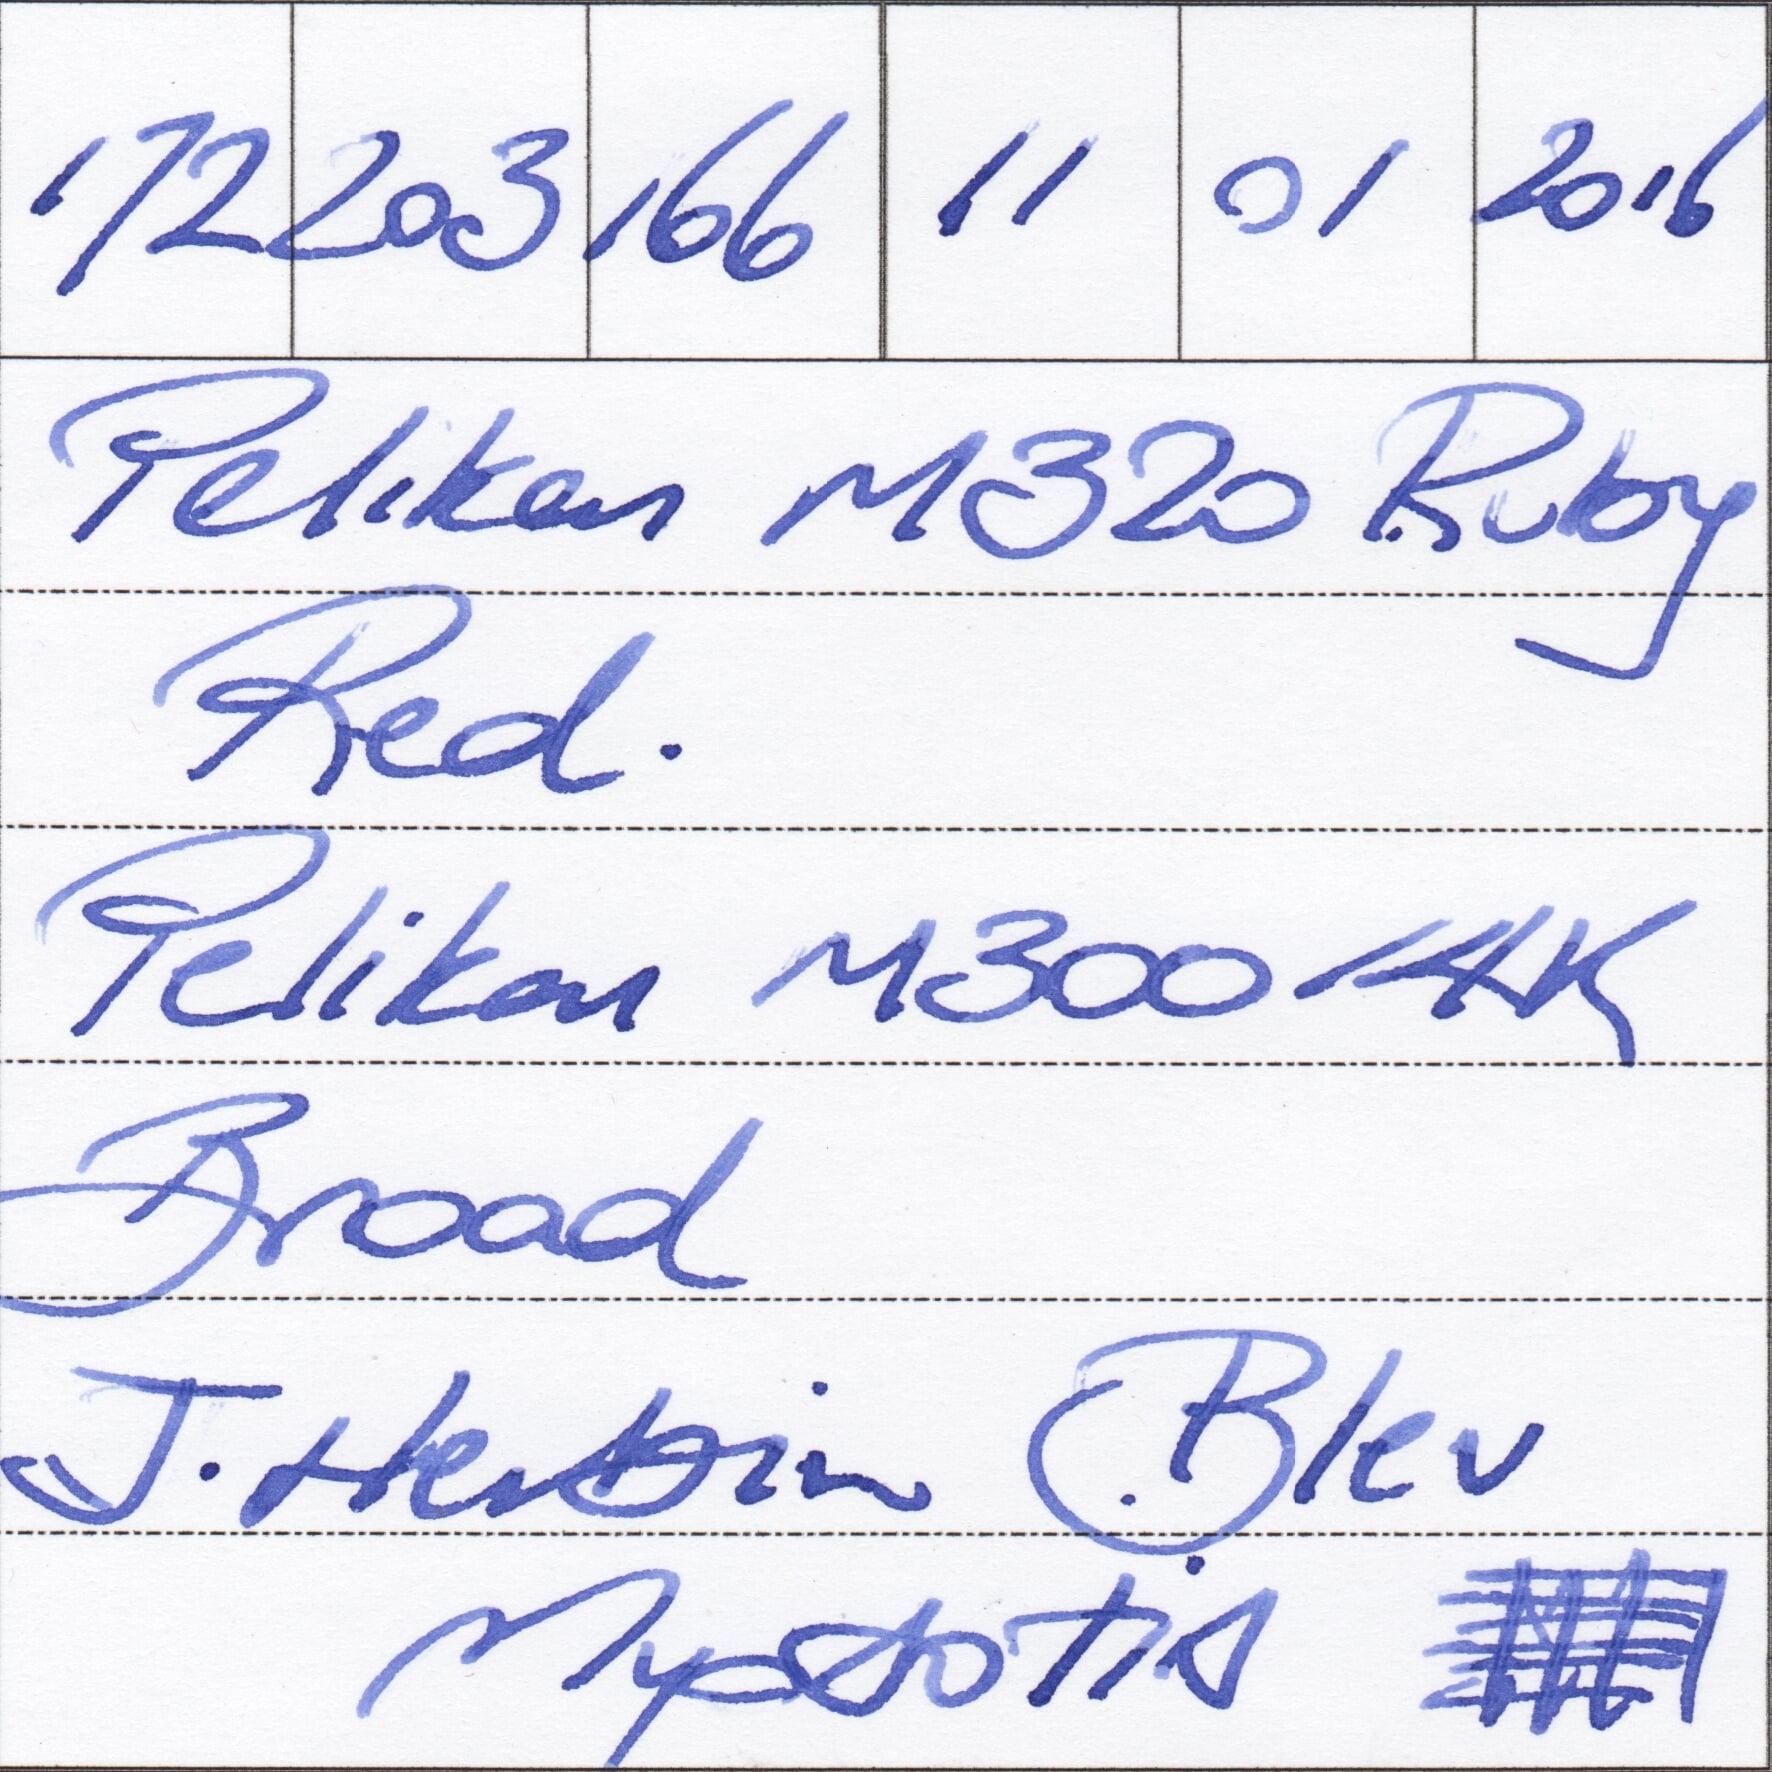 172 203 166 11 01 2016
Pelikan M320 Ruby
Red.
Pelikan M300 14K
Broad
J. Herbin Bleu
Myosotis